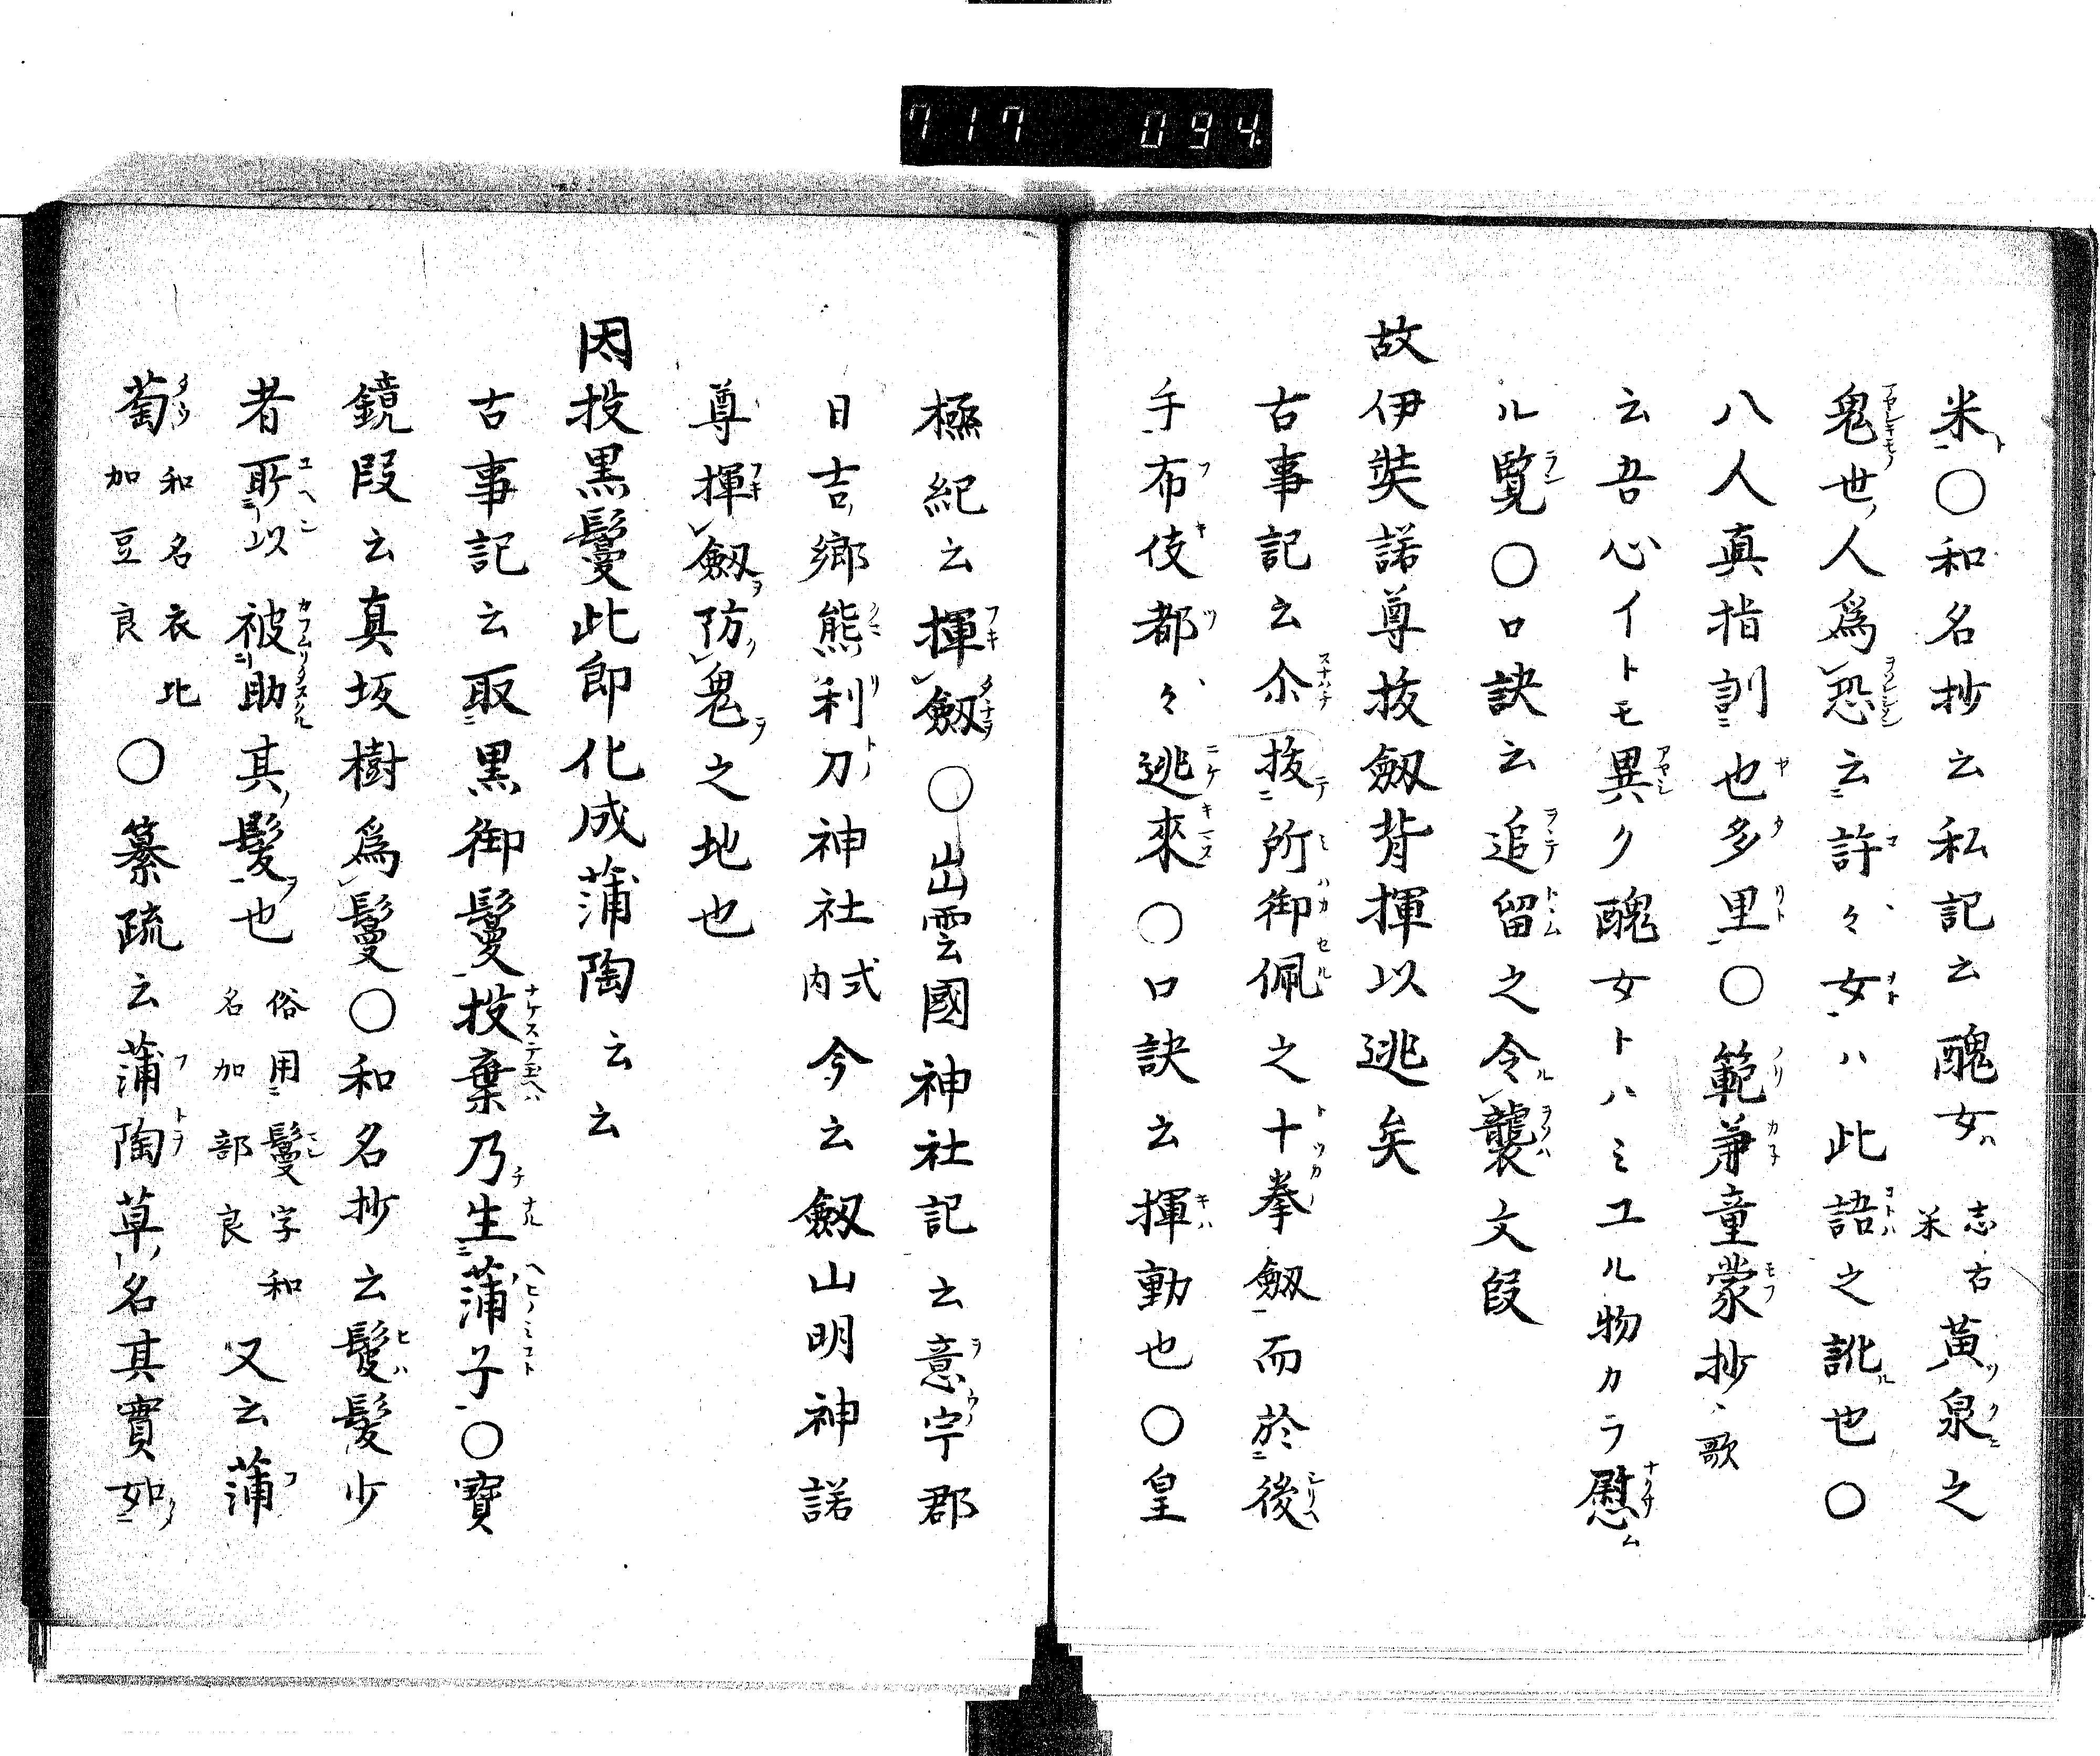 717 094
米○和名抄云私記云醜女 志古米 黄泉之
鬼世人爲恐云許々女ハ此語之訛也○
八人真指訓也多里○範兼童蒙抄歌
云吾心イトモ異ク醜女トハミエル物カラ慰ム
ル覧○口訣云追留之令襲文段
故伊奘諾尊抜劔背揮以逃矣
古事記云尒抜所御佩之十拳劔而於後
手布伎都々逃來○口訣云揮動也○皇
極紀云揮劔○出雲國神社記云意宇郡
日吉鄉熊利刀神社式内今云劔山明神諾
尊揮劔防鬼之地也
因投黒鬘此即化成蒲陶云云
古事記云取黒御鬘投棄乃生蒲子○寶
鏡段云真坂樹爲鬘○和名抄云髲髮少
者所以被助其髮也 俗用鬘字和名加都良 又云蒲
萄 和名衣比加豆良 ○纂疏云蒲陶草名其實如